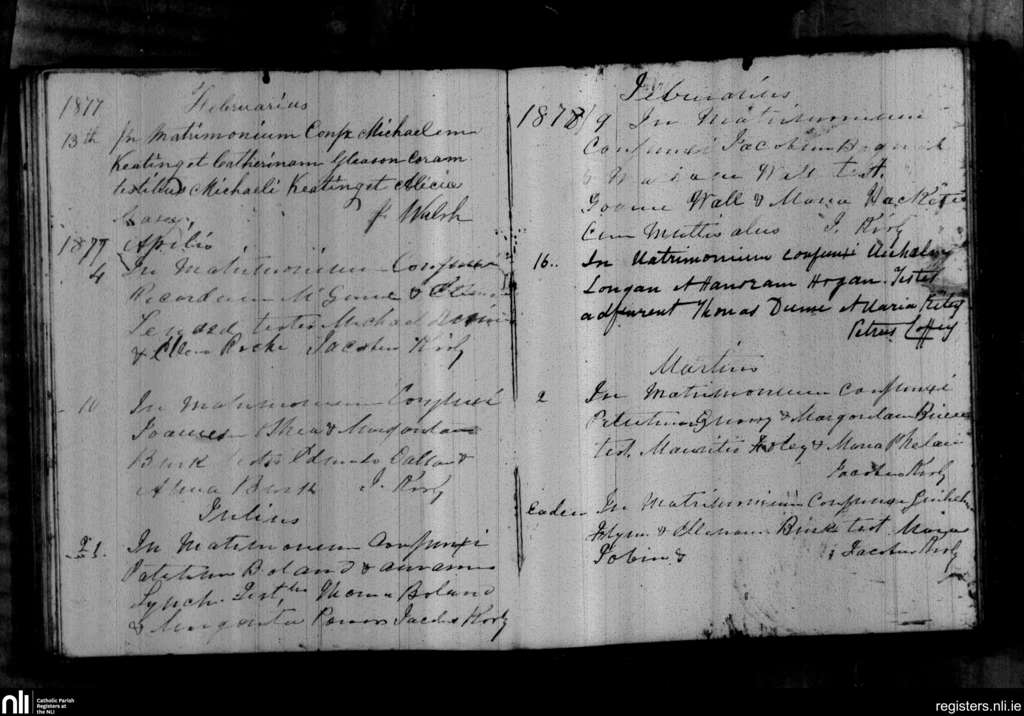 1877 Februarius
13th In Matrimonium Conjx Michaelem
Keating et Catherinam Gleason Coram
testibus Michaeli Keating et Alicia
J. Walsh
1877 Aprilis
4 In Matrimonium Conjunxi
Ricardum &
testes Michael
& Ellena Jacobus Kirby
10 In Matrimonium Conjunxi
Joannem Shea & Margaritam
Burk testes Edmundo &
Anna Burk J. Kirby
Julius
21. In Matrimonium Conjunxi
Patritium Boland &
Lynch Testibus Thoma Boland
& Margarita Power Jacobus Kirby
Februarius
1878/9 In Matrimonium
Conjunxi Jacobum
& Wall test.
Joanne Wall & Maria Hackett
Cum Multis aliis J. Kirby
16.. In Matrimonium conjunxi Michaelem
Longan et Hanoram Hogan. Testes
adfuerunt Thomas Dunne et Maria
Petrus Coffey
Martius
2 In Matrimonium conjunxi
Patritium & Margaritam
test. Mauritio Foley & Maria Phelan
Jacobus Kirby
Eadem In Matrimonium Conjunxi
Flynn & Ellenam Burke test Maria
Tobin & Jacobus Kirby
nli Catholic Parish
Registers at
the NLI
registers.nli.ie